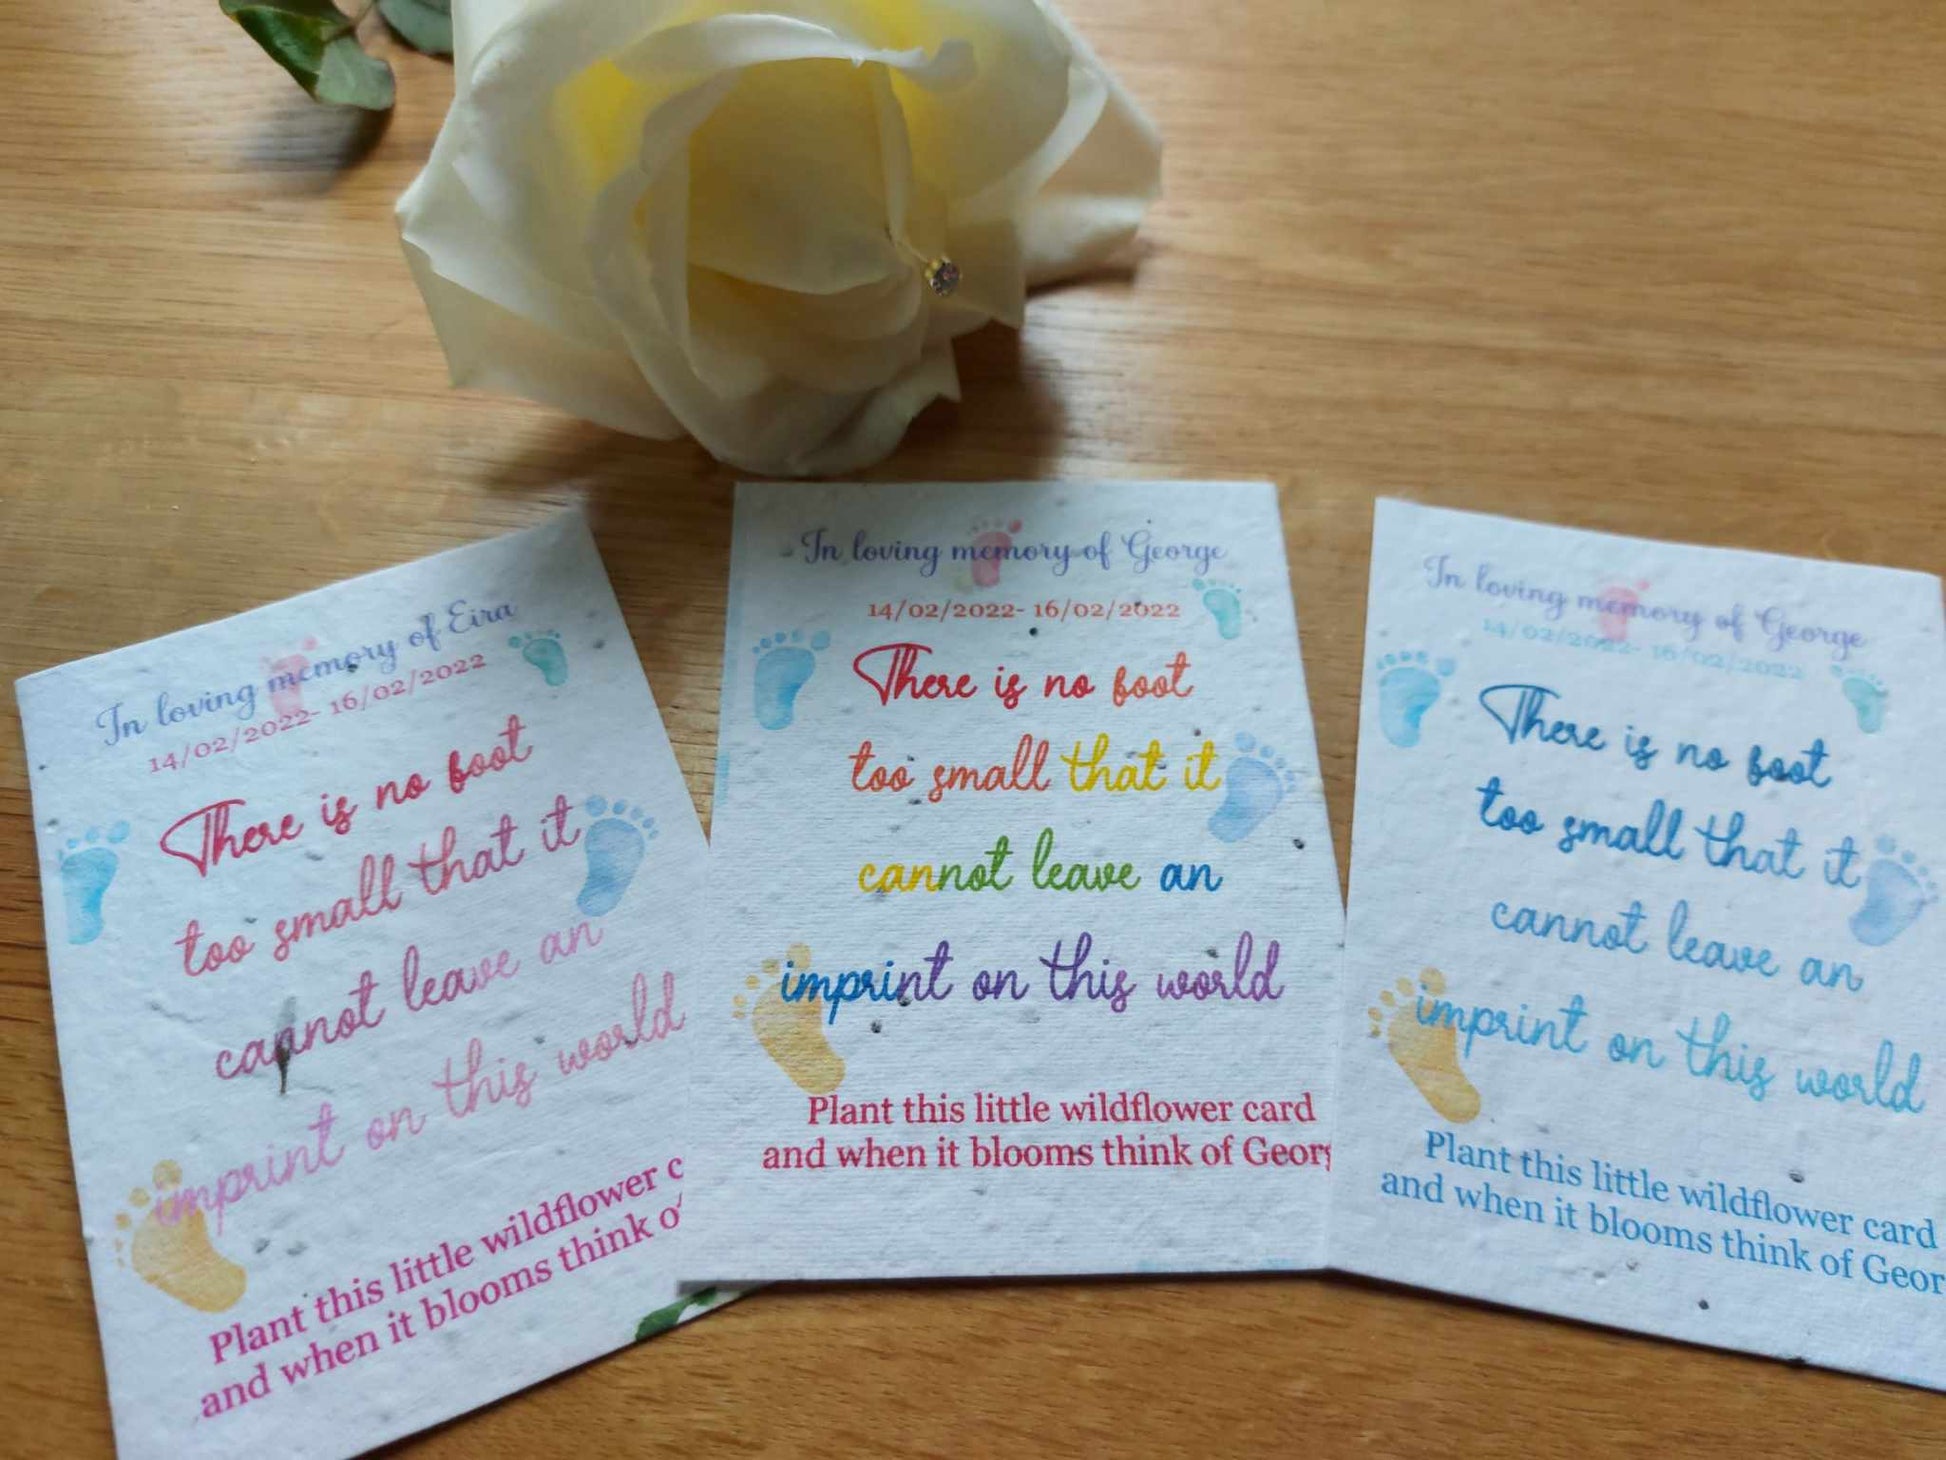 In loving memory of Eira
14/02/2022- 16/02/2022
There is no foot
too small that it
cannot leave an
imprint on this world
Plant this little wildflower c
and when it blooms think o
In loving memory of George
14/02/2022- 16/02/2022
There is no foot
too small that it
cannot leave an
imprint on this world
Plant this little wildflower card
and when it blooms think of Georg
In loving memory of George
14/02/2022- 16/02/2022
There is no foot
too small that it
cannot leave an
imprint on this world
Plant this little wildflower card
and when it blooms think of Geor